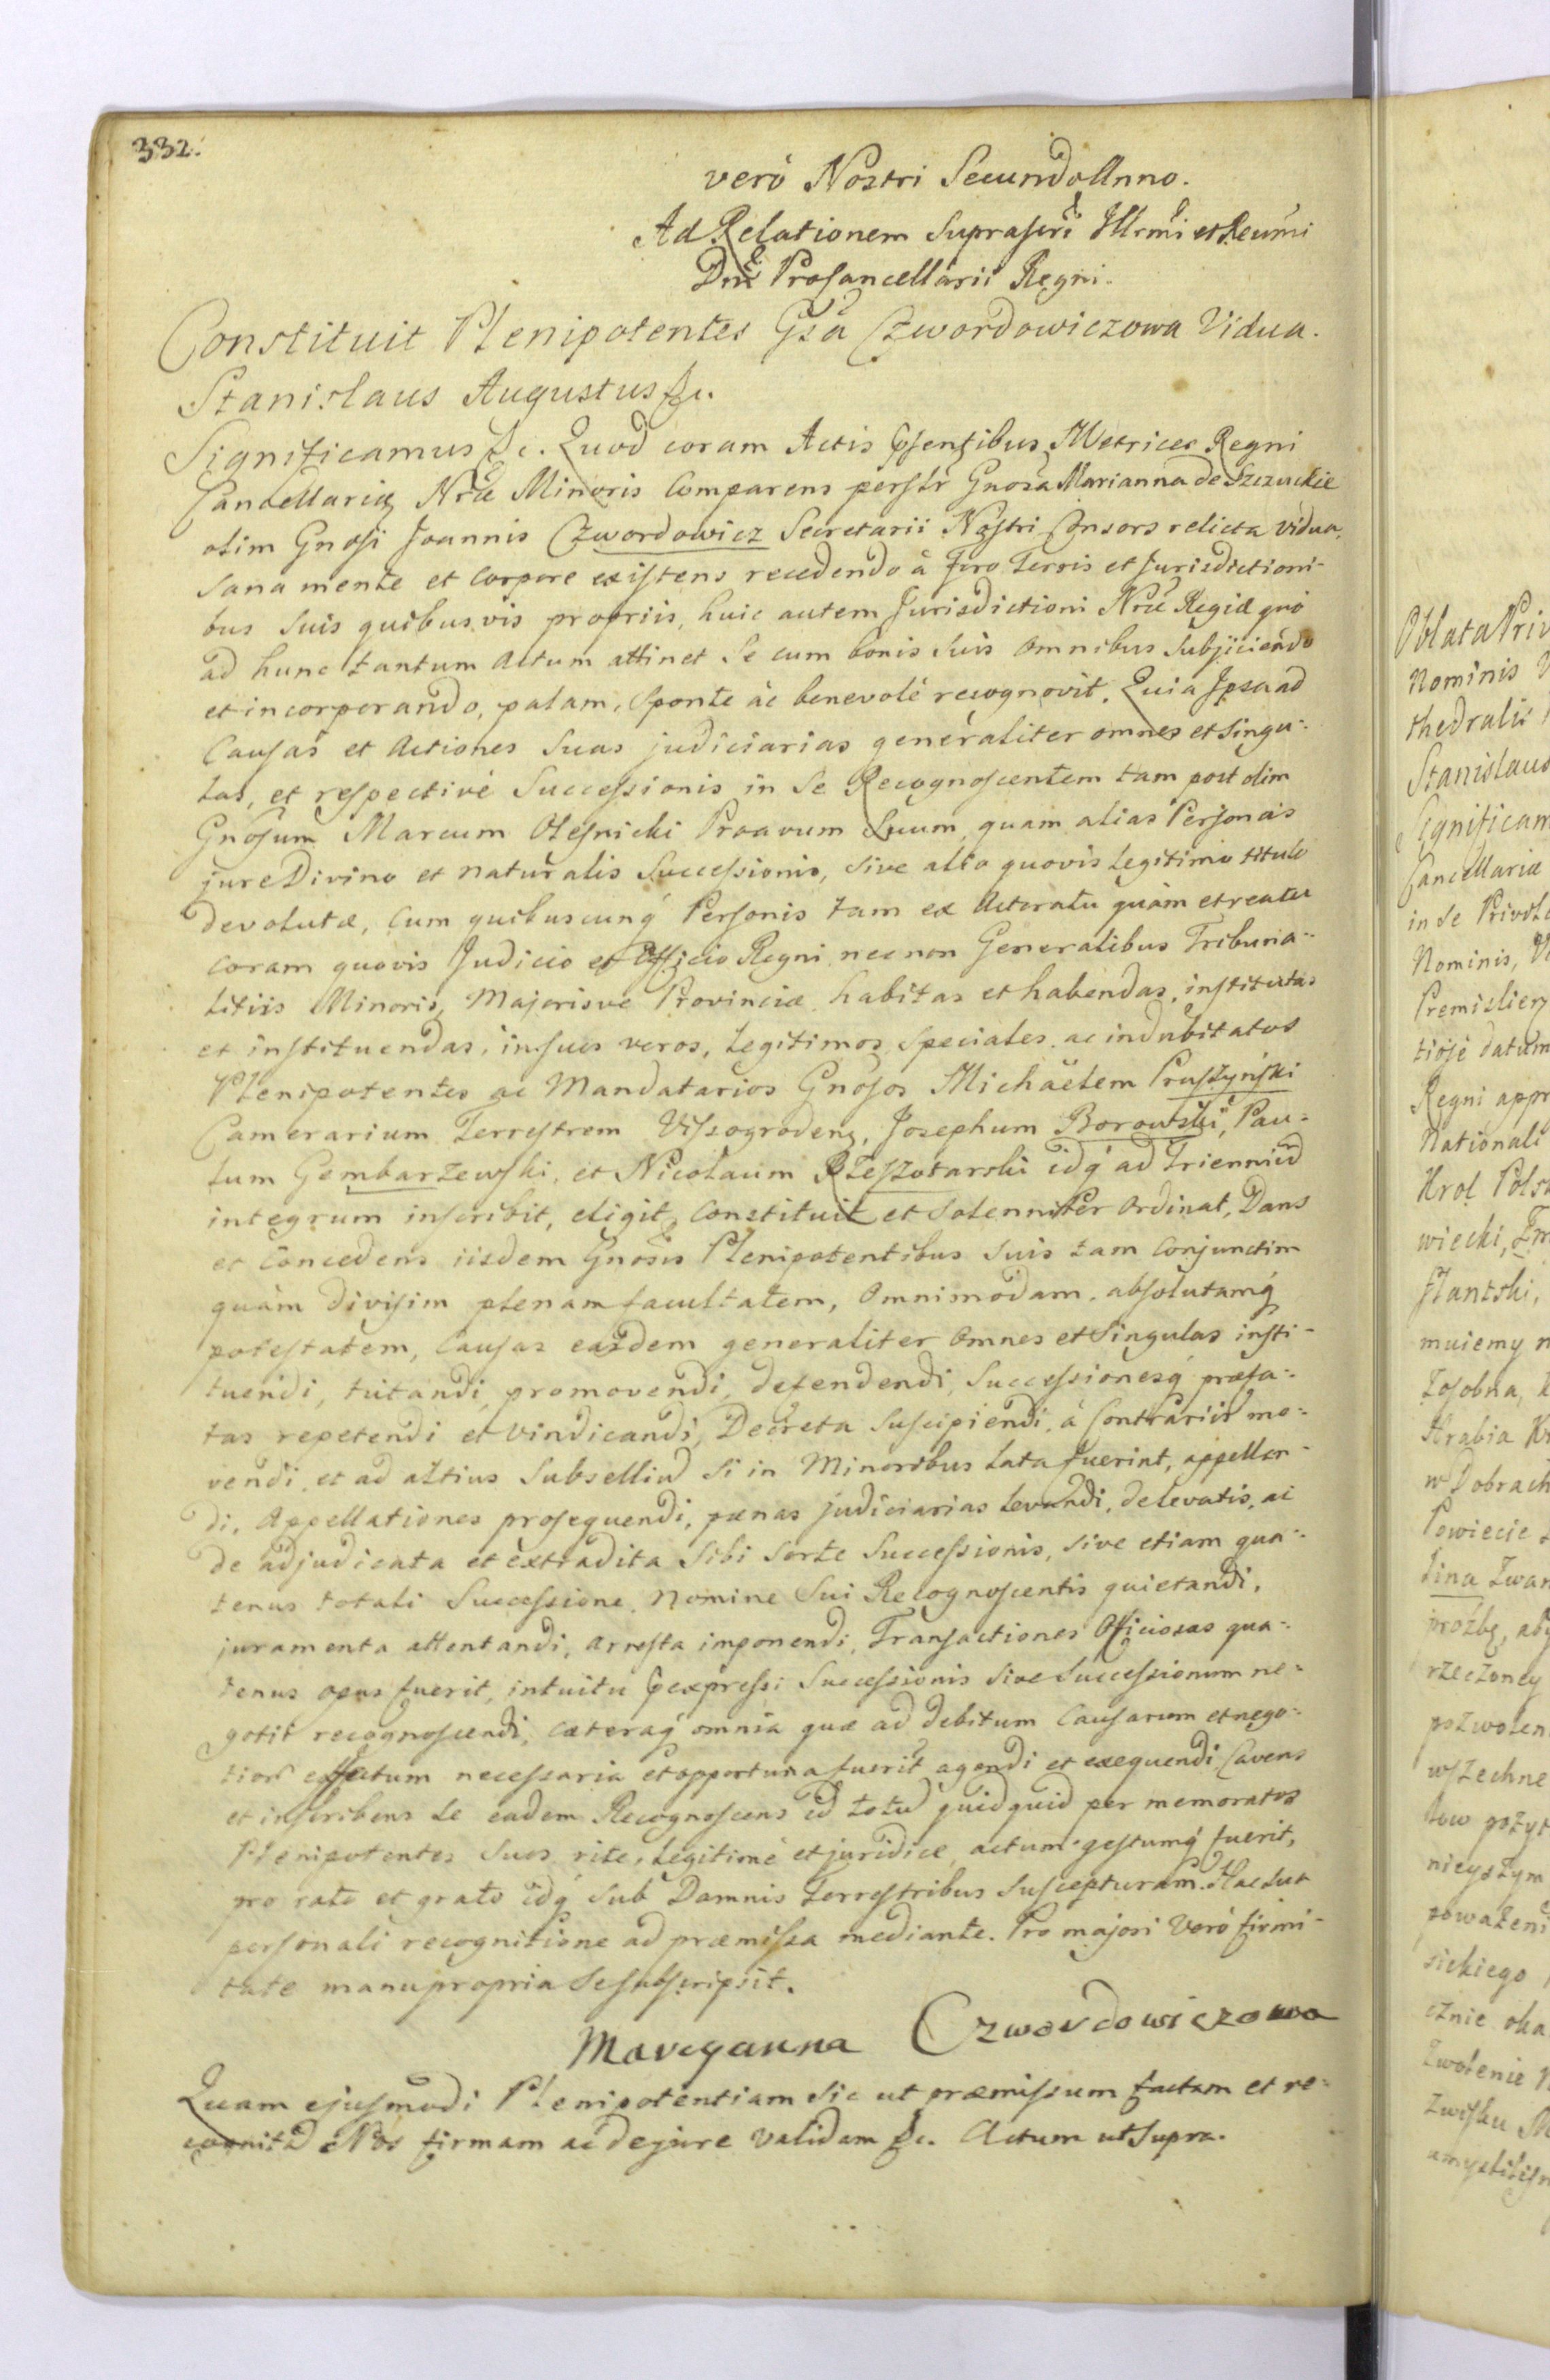 332.
verò Nostri Secundo Anno.
Ad Relationem Suprascri Illrmi et Reumi
Dni Procancellarii Regni.
Constituit Plenipotentes Gsa Czwordowiczowa Vidua.
Stanislaus Augustus &c.
Significamus &c. Quod coram Actis psentibus Metrices Regni
Cancellariæ Nræ Minoris Comparens perslr Gnosa Marianna de Szczuckie
olim Gnosi Joannis Czwordowicz Secretarii Nostri Consors relicta vidua,
sana mente et corpore existens recedendo à foro Terris et Jurisdictioni-
bus suis quibusvis propriis, huic autem Jurisdictioni Nræ Regiæ qnò
ad hunc tantum Actum attinet se cum bonis suis omnibus subjiciendo
et incorporando, palam, sponte ac benevolè recognovit. Quia Ipsa ad
Causas et Actiones suas judiciarias generaliter omnes et singu-
las, et respectivè Successionis in se Recognoscentem tam post olim
Gnosum Marcum Olesnicki Proavum Suum, quam alias Personas
jure Divino et naturalis Successionis, sive alio quovis legitimo titulo
devolutæ, cum quibuscunq́ Personis tam ex Actoratu quàm et reatu
coram quovis Judicio et Officio Regni nec non Generalibus Tribuna-
litiis Minoris, Majorisve Provinciæ habitas et habendas, institutas
et instituendas, in suos veros, legitimos, speciales, ac indubitatos
Plenipotentes ac Mandatarios Gnosos Michaëlem Pruszyński
Camerarium Terrestrem Vissogrodens, Josephum Borowski, Pau-
lum Gembarzewski, et Nicolaum Rzeszotarski idq́ ad Trienniũ
integrum inscribit, eligit, Constituit et solenniter Ordinat, Dans
et Concedens iisdem Gnosis Plenipotentibus suis tam conjunctim
quàm divisim plenam facultatem, Omnimodam, absolutamq́
potestatem, Causas easdem generaliter omnes et singulas insti-
tuendi, tutandi, promovendi, defendendi, Successionesq́ præfa-
tas repetendi et vindicandi, Decreta suscipiendi, à Contrariis mo-
vendi, et ad altius Subselliũ si in Minoribus lata fuerint, appellan-
di, Appellationes prosequendi, pœnas judiciarias levandi, de levatis, ac
de adjudicata et extradita sibi sorte Successionis, sive etiam qua-
tenus totali Successione, nomine sui Recognoscentis quietandi,
juramenta attentandi, arresta imponendi, Transactiones Officiosas qua-
tenus opus fuerit, intuitu pexpressi Successionis sive Successionum ne-
gotii recognoscendi, cæteraq́ omnia quæ ad debitum Causarum et nego-
tior effectum necessaria et opportuna fuerit agendi et exequendi Cavens
et inscribens se eadem Recognoscens id totũ quidquid per memoratos
Plenipotentes suos ritè, legitimè et juridicè, actum gestumq́ fuerit,
pro rato et grato idq́ sub Damnis Terrestribus suscepturam. Hac sua
personali recognitione ad præmissa mediante. Pro majori verò firmi-
tate manu propria se subscripsit.
Maryganna Czwordowiczowa
Quam ejusmodi Plenipotentiam sic ut præmissum factam et re-
cognitã Nos firmam ac de jure validam &c. Actum ut supra.
Oblata Priv
Nominis V
thedralis
Stanislaus
Significam
Cancellariæ
in se Privile
Nominis, V
Premislien
tiose datum
Regni appr
Nationali
Krol Pols
wiecki, Zm
flantski,
muiemy n
zosobna, k
Hrabia Kr
w Dobrach
Powiecie
tina zwan
prozbę, aby
rzeczoney
pozwolen
wszechne
tow pożyt
nieyszym
poważeni
sickiego
cznie oka
zwolenie N